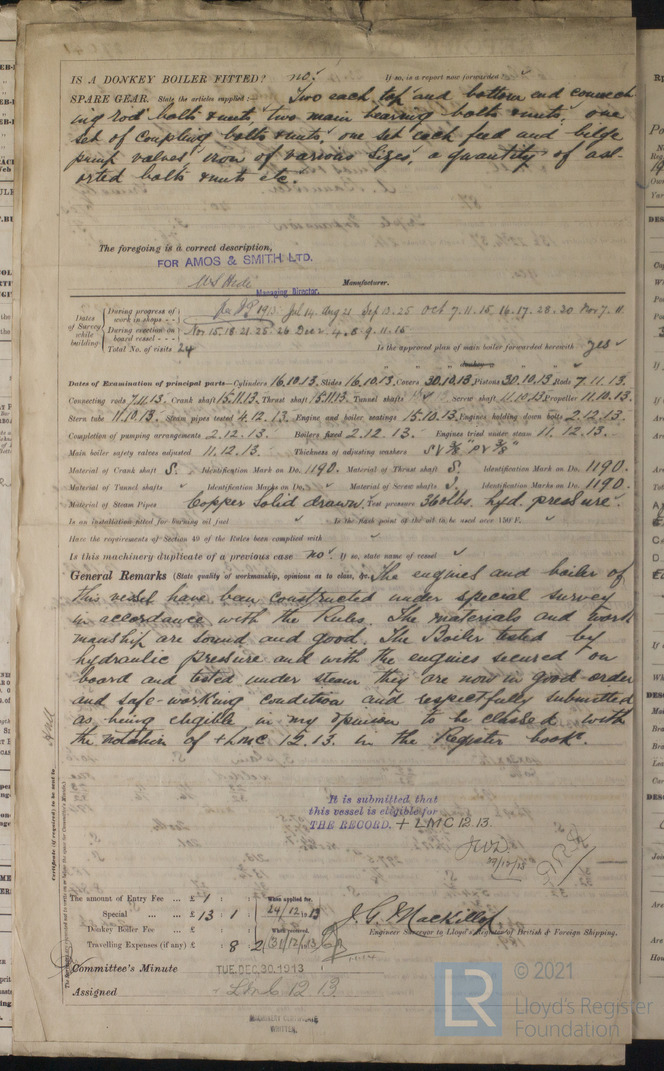 IS A DONKEY BOILER FITTED? no. If so, is a report now forwarded
SPARE GEAR. State the articles supplied:- Two each top and bottom end connect
ing rod bolts & nuts, two main bearing bolts & nuts, one
set of coupling bolts & nuts, one set each feed and bilge
pump valves, iron of various sizes, a quantity of ass-
orted bolts & nuts etc.
The foregoing is a correct description,
FOR AMOS & SMITH LTD.
Managing Director. Manufacturer.
Dates of Survey while building
During progress of work in shops - - 1913: Jul 14. Aug 21 Sep 13. 25 Oct 7. 11. 15. 16. 17. 28. 30. Nov 7. 11
During erection on board vessel - - - Nov 15. 18. 21. 25. 26 Dec 2. 4. 8. 9. 11. 15
Total No. of visits 24 Is the approved plan of main boiler forwarded herewith yes
" " " donkey " " "
Dates of Examination of principal parts—Cylinders 16.10.13. Slides 16.10.13. Covers 30.10.13. Pistons 30.10.13. Rods 7.11.13.
Connecting rods 7.11.13. Crank shaft 15.11.13. Thrust shaft 15.11.13. Tunnel shafts Screw shaft 11.10.13 Propeller 11.10.13.
Stern tube 11.10.13. Steam pipes tested 4.12.13. Engine and boiler seatings 15.10.13. Engines holding down bolts 2.12.13.
Completion of pumping arrangements 2.12.13. Boilers fixed 2.12.13. Engines tried under steam 11.12.13.
Main boiler safety valves adjusted 11.12.13. Thickness of adjusting washers S V 3/8" P V 3/8"
Material of Crank shaft S. Identification Mark on Do. 1190. Material of Thrust shaft S. Identification Mark on Do. 1190.
Material of Tunnel shafts Identification Marks on Do. Material of Screw shafts S. Identification Marks on Do. 1190.
Material of Steam Pipes Copper Solid drawn. Test pressure 360lbs. hyd. pressure.
Is an installation fitted for burning oil fuel Is the flash point of the oil to be used over 150°F.
Have the requirements of Section 49 of the Rules been complied with
Is this machinery duplicate of a previous case no. If so, state name of vessel
General Remarks (State quality of workmanship, opinions as to class, &c. The engines and boiler of
this vessel have been constructed under special survey
in accordance with the Rules. The materials and work
manship are sound and good. The Boiler tested by
hydraulic pressure and with the engines secured on
board and tested under steam they are now in good order
and safe working condition and respectfully submitted
as being eligible in my opinion to be classed with
the notation of +LMC 12.13. in the Register book.
Hull
Certificate (if required) to be sent to
It is submitted that
this vessel is eligible for
THE RECORD. + LMC 12.13.
The amount of Entry Fee ... £ 1 : : When applied for,
Special ... ... £ 13 : 1 : 24/12/1913
Donkey Boiler Fee ... £ : : When received,
Travelling Expenses (if any) £ : 8 : 2 31/12/1913
J. G. Mackillop
Engineer Surveyor to Lloyd's Register of British & Foreign Shipping.
Committee's Minute TUE. DEC. 30. 1913
Assigned + LMC 12.13
MACHINERY CERTIFICATE
WRITTEN.
LR
© 2021
Lloyd's Register
Foundation